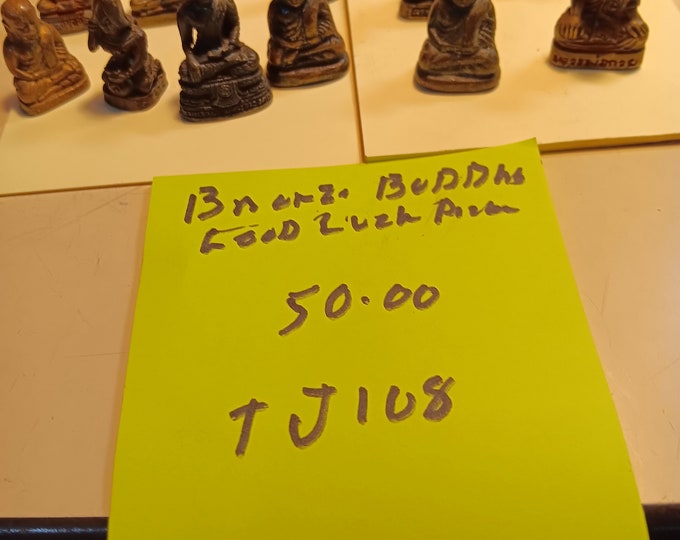 Bronze Buddhs
Good Luck
50.00
TJ108